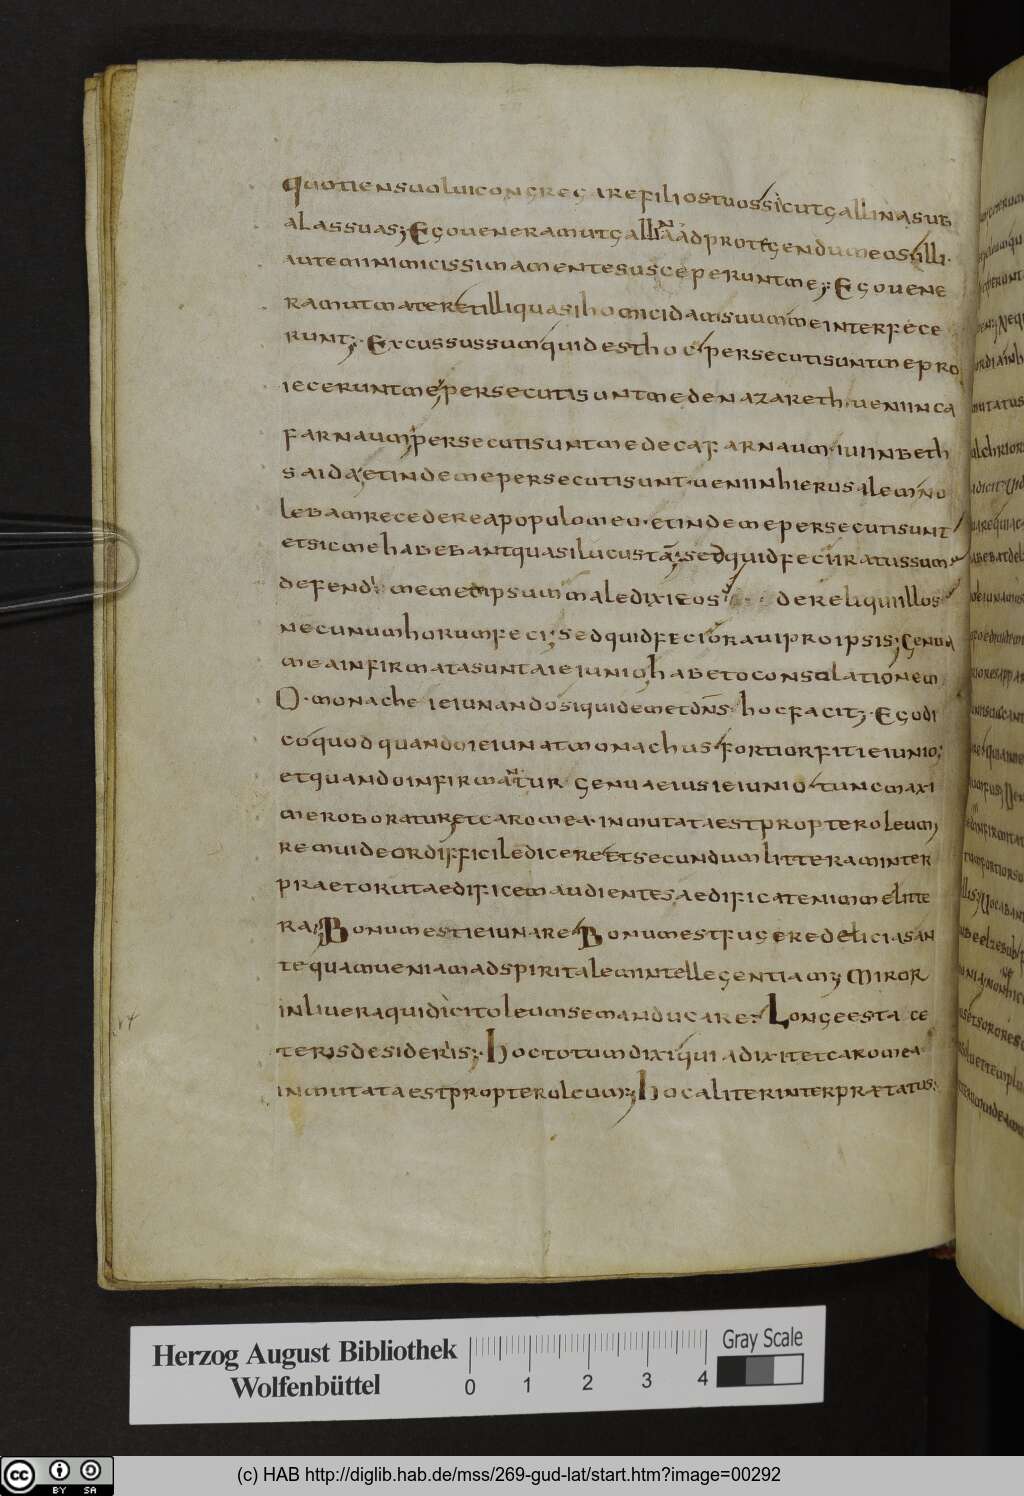 quotiens uolui congregare filios tuos sicut gallina sub
alas suas; Ego ueneram ut gallina ad protegendum eos illi·
autem inimicissima mente susceperunt me; Ego uene
ram ut mater et illi quasi homicidam suum me interfece
runt; Excussus sum quid est hoc persecuti sunt me pro
iecerunt me; persecuti sunt me de nazareth· ueni in ca
farnaum; persecuti sunt me de cafarnaum· iui in beth
saida; et inde me persecuti sunt· ueni in hierusalem no
lebam recedere a populo meo· et inde me persecuti sunt
et sic me habebant quasi lucusta; sed quid feci iratus sum
defendi memet ipsum maledixi eos dereliqui illos
necunum horum feci; sed quid feci oraui pro ipsis; Genua
mea infirmata sunt a ieiunio; habeto consolationem
O· monache ieiunando siquidem et dns· hoc facit; Ego di
co quod quando ieiunat monachus fortior fit ieiunio;
et quando infirmatur genua eius ieiunio tunc maxi
me roboratur; et caro mea· inmutata est propter oleum;
rem uideor difficile dicere et secundum litteram inter
praetor ut aedificem audientes aedificat enim me litte
ra; Bonum est ieiunare Bonum est fugere delicias an
te quam ueniam ad spiritalem intellegentiam; Miror
in liuera quid icit oleum se manducare; Longe est a ce
teris desideriis; Hoc totum dixi qui a dixit et caro mea
inmutata est propter oleum; Hoc aliter interpraetatus:
Herzog August Bibliothek
Wolfenbüttel
0 1 2 3 4
Gray Scale
cc BY SA
(c) HAB http://diglib.hab.de/mss/269-gud-lat/start.htm?image=00292